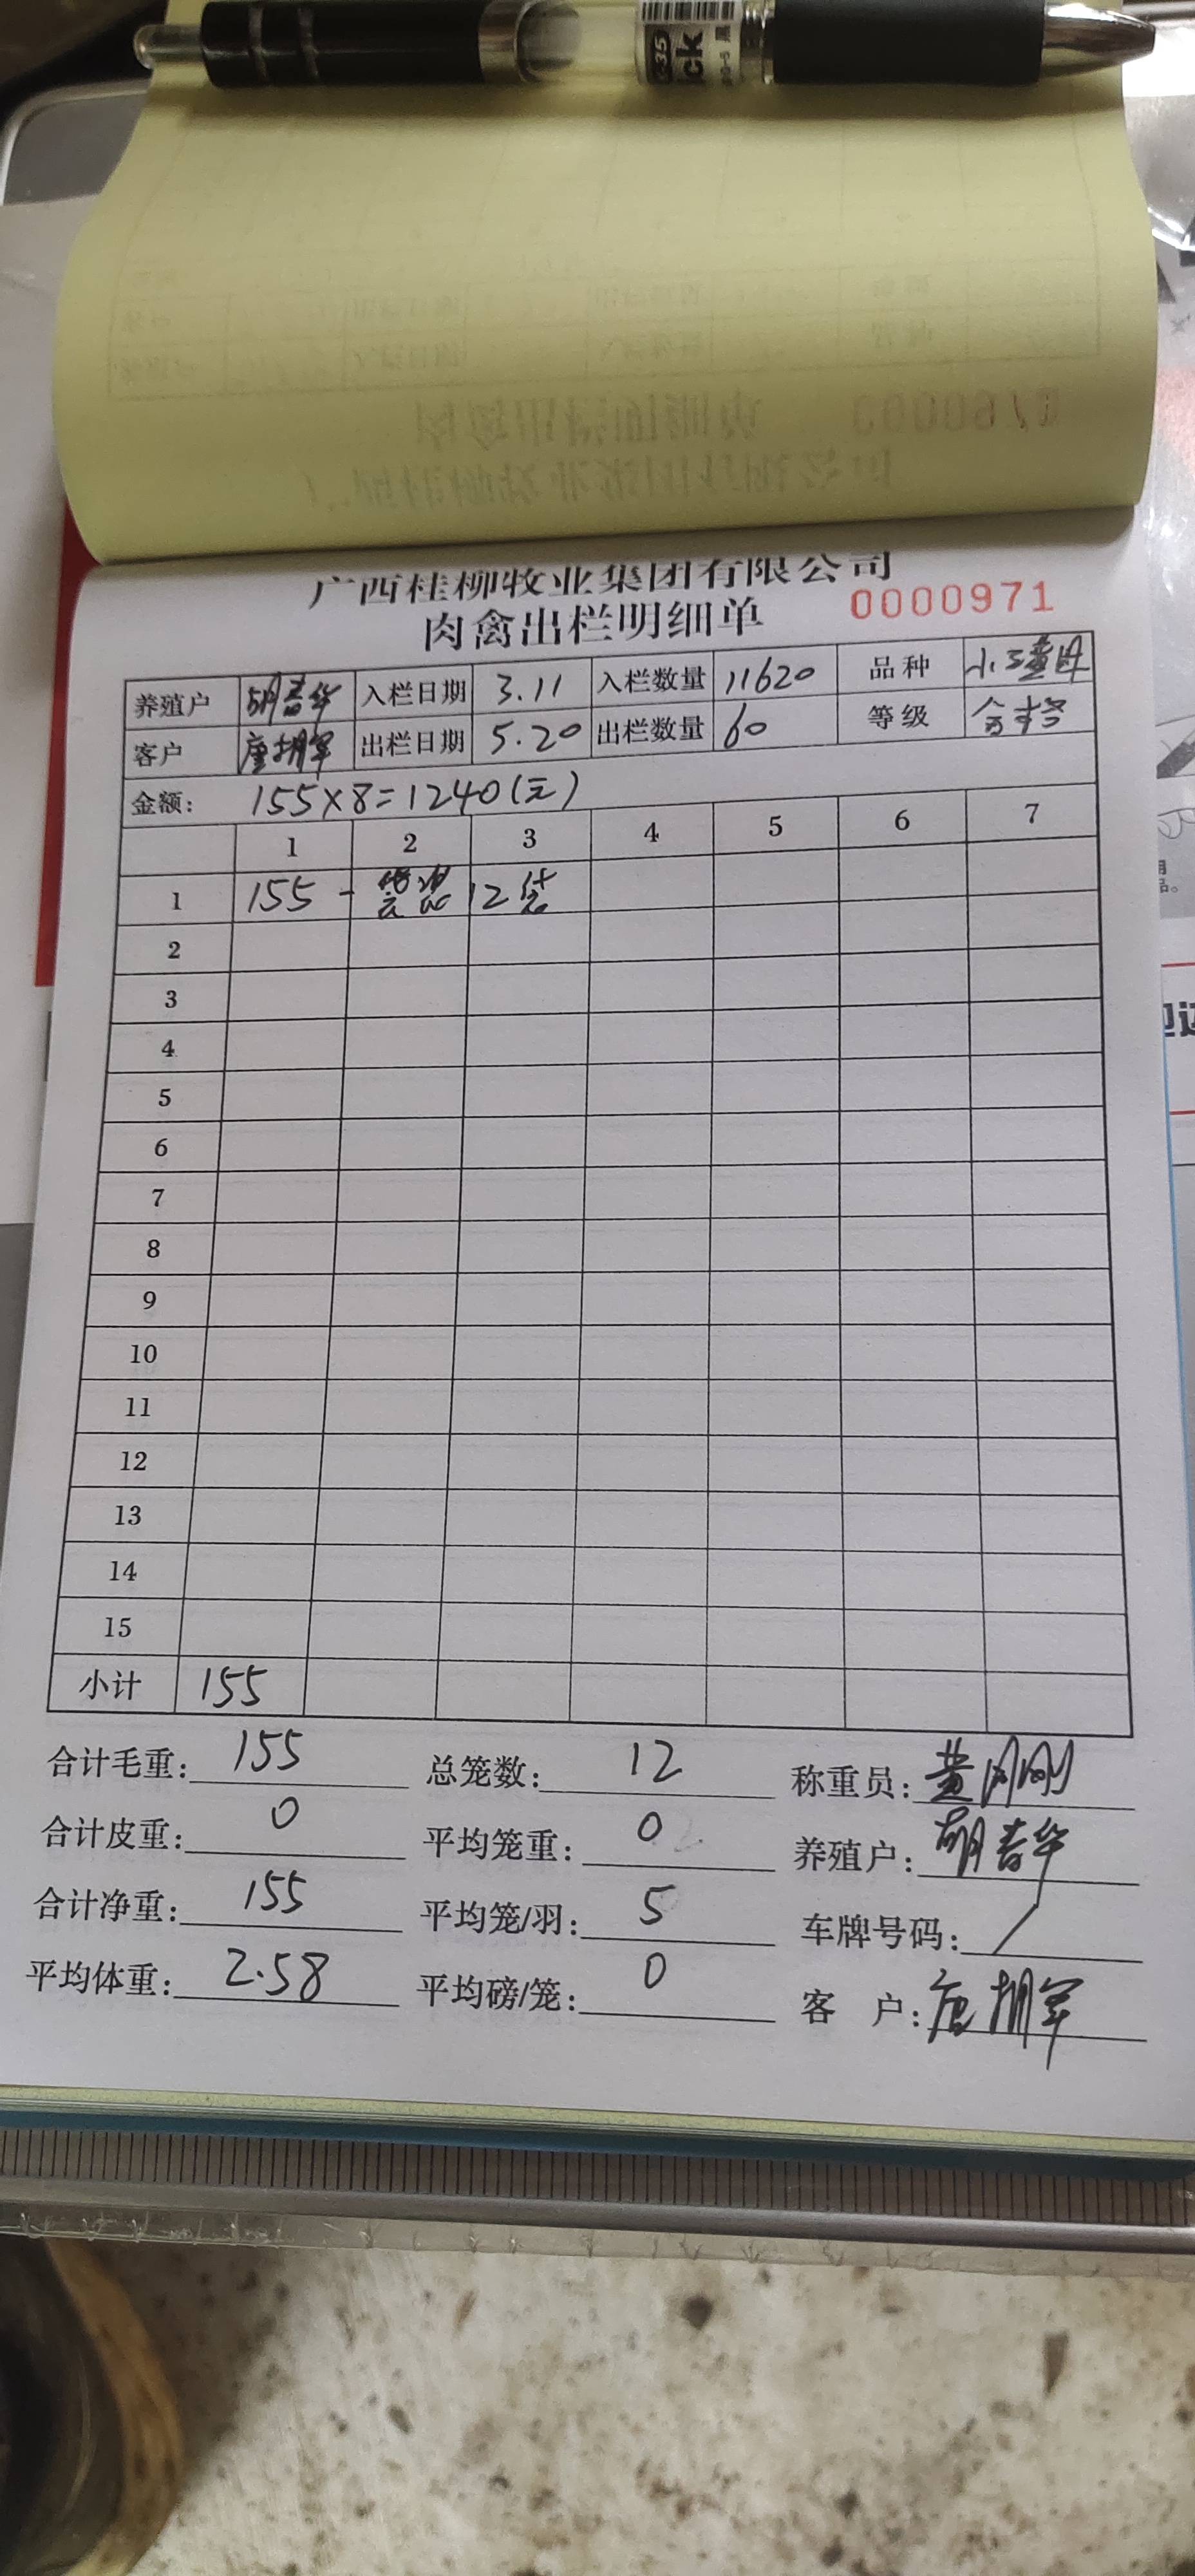 广西桂柳牧业集团有限公司
肉禽出栏明细单 0000971
养殖户 胡春华 入栏日期 3.11 入栏数量 11620 品种
客户 出栏日期 5.20 出栏数量 60 等级 合格
金额: 155×8=1240(元)
1 2 3 4 5 6 7
1 155 - 12袋
2
3
4
5
6
7
8
9
10
11
12
13
14
15
小计 155
合计毛重: 155 总笼数: 12 称重员:
合计皮重: 0 平均笼重: 0 养殖户: 胡春华
合计净重: 155 平均笼/羽: 5 车牌号码: /
平均体重: 2.58 平均磅/笼: 0 客 户: